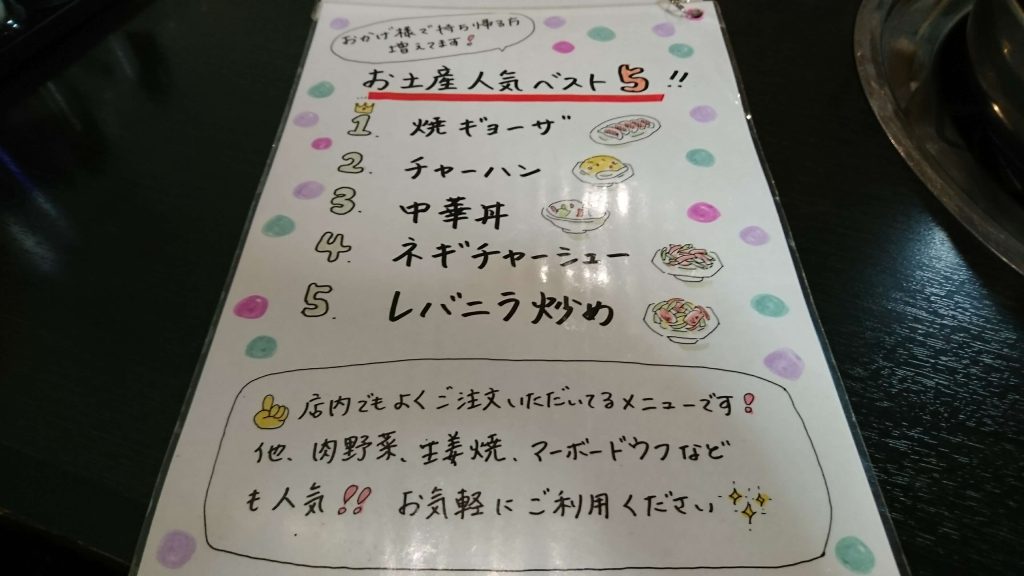 おかげ様で持ち帰る方
増えてます!
お土産人気ベスト5!!
1. 焼ギョーザ
2. チャーハン
3. 中華丼
4. ネギチャーシュー
5. レバニラ炒め
店内でもよくご注文いただいてるメニューです!
他、肉野菜、生姜焼、マーボードウフなど
も人気!! お気軽にご利用ください